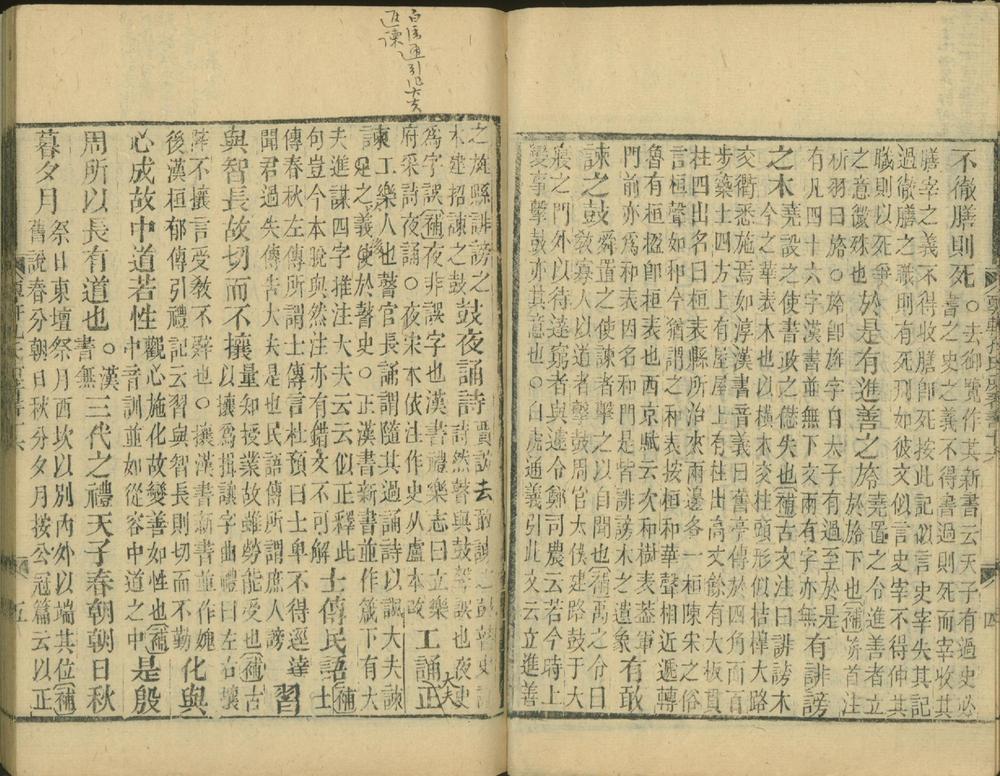 不徹膳則死。去御覽作其新書云天子有過史必
書之史之義不得書過則死而宰收其
膳宰之義不得收膳則死按此記似言史宰失其記
過徹膳之職則有死刑如彼文似言史宰不得伸其
職則以死爭
之意僘殊也於是有進善之旍堯置之令進善者立
於旍下也補旍首注
析羽曰旍。旍卽旌字自太子有過至於是有誹謗
有凡四十六字漢書並無下文兩有字亦無
之木堯設之使書政之僁失也補古文注曰誹謗木
今之華表木也以橫木交柱頭形似桔橰大路
交衢悉施焉如淳漢書音義曰舊亭傳於四角面百
步築土四方上有屋屋上有柱出高丈餘有大板貫
柱四出名曰桓表縣所治夾兩邊各一桓陳宋之俗
言桓聲如和今猶謂之和表按桓和華聲相近遞轉
魯有桓楹卽桓表也西京賦云次和樹表蓋軍
門前亦爲和表因名和門是皆誹謗木之遺象有敢
諫之鼓舜置之使諫者擊之以自聞也補禹之令曰
敎寡人以道者擊鼓周官太僕建路鼓于大
寢之門外以待達窮者與遽令鄭司農云若今時上
變事擊鼓亦其意也。白虎通義引此文云立進善
之旌縣誹謗之
木建招諫之鼓鼓夜誦詩
爲字誤補夜非誤字也漢書禮樂志曰立樂
府采詩夜誦。夜宋本依注作史从盧本改工誦正
諫工樂人也瞽官長誦謂隨其過誦詩以諷大夫諫
夫進謀四字推注大夫云云似正釋此
句豈今本脫與然注亦有錯文不可解士傳民語士
傳春秋左傳所謂士傳言杜預曰士卑不得逕達
聞君過失傳告大夫是也民語傳所謂庶人謗習
與智長故切而不攘量知授業故雖勞能受也補古
以攘爲揖讓字曲禮曰左右攘
辟不攘言受敎不辭也。攘漢書新書並作媿
後漢桓郁傳引禮記云習與智長則切而不勤化與
心成故中道若性觀心施化故變善如性也補
中音訓並如從容中道之中是殷
周所以長有道也。漢
書無三代之禮天子春朝朝日秋
暮夕月祭日東壇祭月西坎以別內外以端其位補
舊說春分朝日秋分夕月按公冠篇云以正
四
五
白虎通引此大夫
進諫